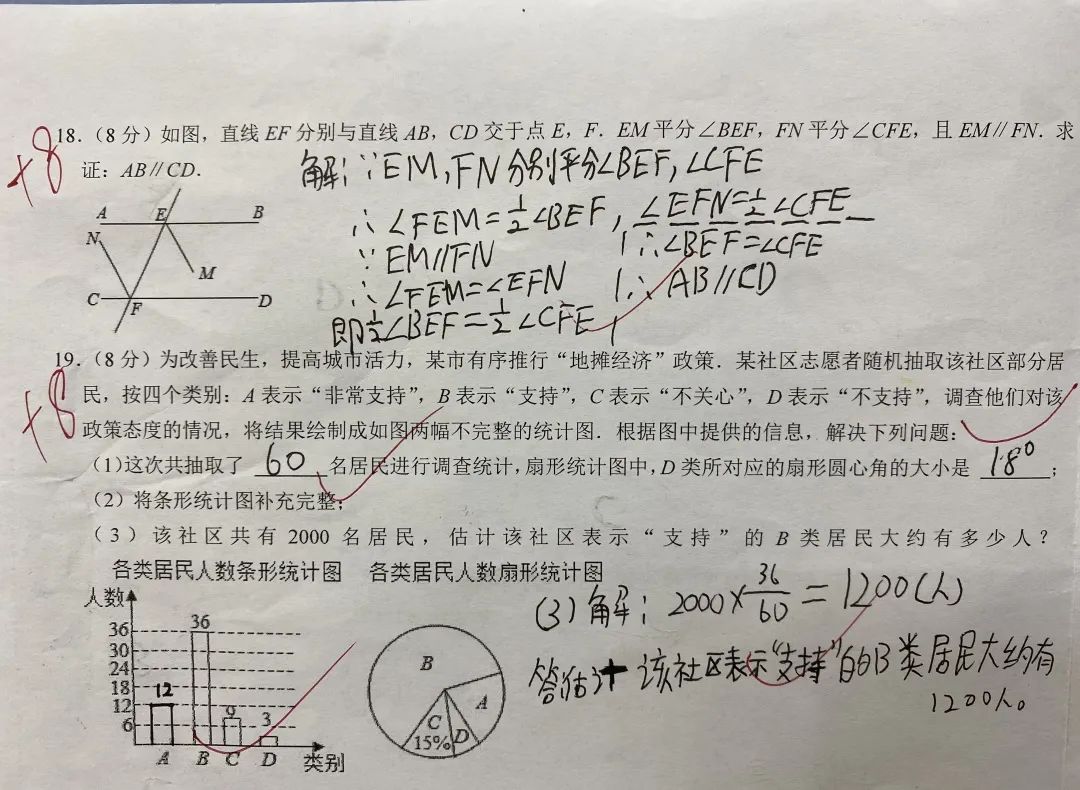 +8
18.（8 分）如图，直线 EF 分别与直线 AB，CD 交于点 E，F．EM 平分∠BEF，FN 平分∠CFE，且 EM∥FN．求
证：AB∥CD．
解：∵EM,FN分别平分∠BEF,∠CFE
∴∠FEM=½∠BEF，∠EFN=½∠CFE
∵EM//FN
∴∠FEM=∠EFN
即½∠BEF=½∠CFE
∴∠BEF=∠CFE
∴AB//CD
A E B
N
M
C F D
+8
19.（8 分）为改善民生，提高城市活力，某市有序推行“地摊经济”政策．某社区志愿者随机抽取该社区部分居
民，按四个类别：A 表示“非常支持”，B 表示“支持”，C 表示“不关心”，D 表示“不支持”，调查他们对该
政策态度的情况，将结果绘制成如图两幅不完整的统计图．根据图中提供的信息，解决下列问题：
（1）这次共抽取了 60 名居民进行调查统计，扇形统计图中，D 类所对应的扇形圆心角的大小是 18°；
（2）将条形统计图补充完整；
（3）该社区共有 2000 名居民，估计该社区表示“支持”的 B 类居民大约有多少人？
各类居民人数条形统计图 各类居民人数扇形统计图
人数
36
30
24
18
12
6
12 36 9 3
A B C D 类别
B
A
C
15%
D
(3)解：2000×36/60=1200(人)
答估计该社区表示“支持”的B类居民大约有
1200人。